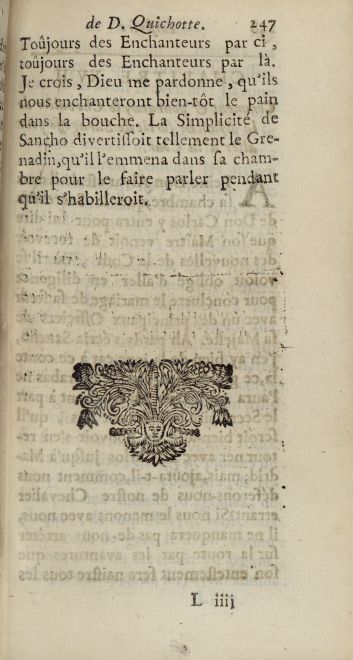 de D. Quichotte. 247
Toûjours des Enchanteurs par ci,
toûjours des Enchanteurs par là.
Je crois, Dieu me pardonne, qu'ils
nous enchanteront bien-tôt le pain
dans la bouche. La Simplicité de
Sancho divertiſſoit tellement le Gre-
nadin, qu'il l'emmena dans ſa cham-
bre pour le faire parler pendant
qu'il s'habilleroit.
L iiij